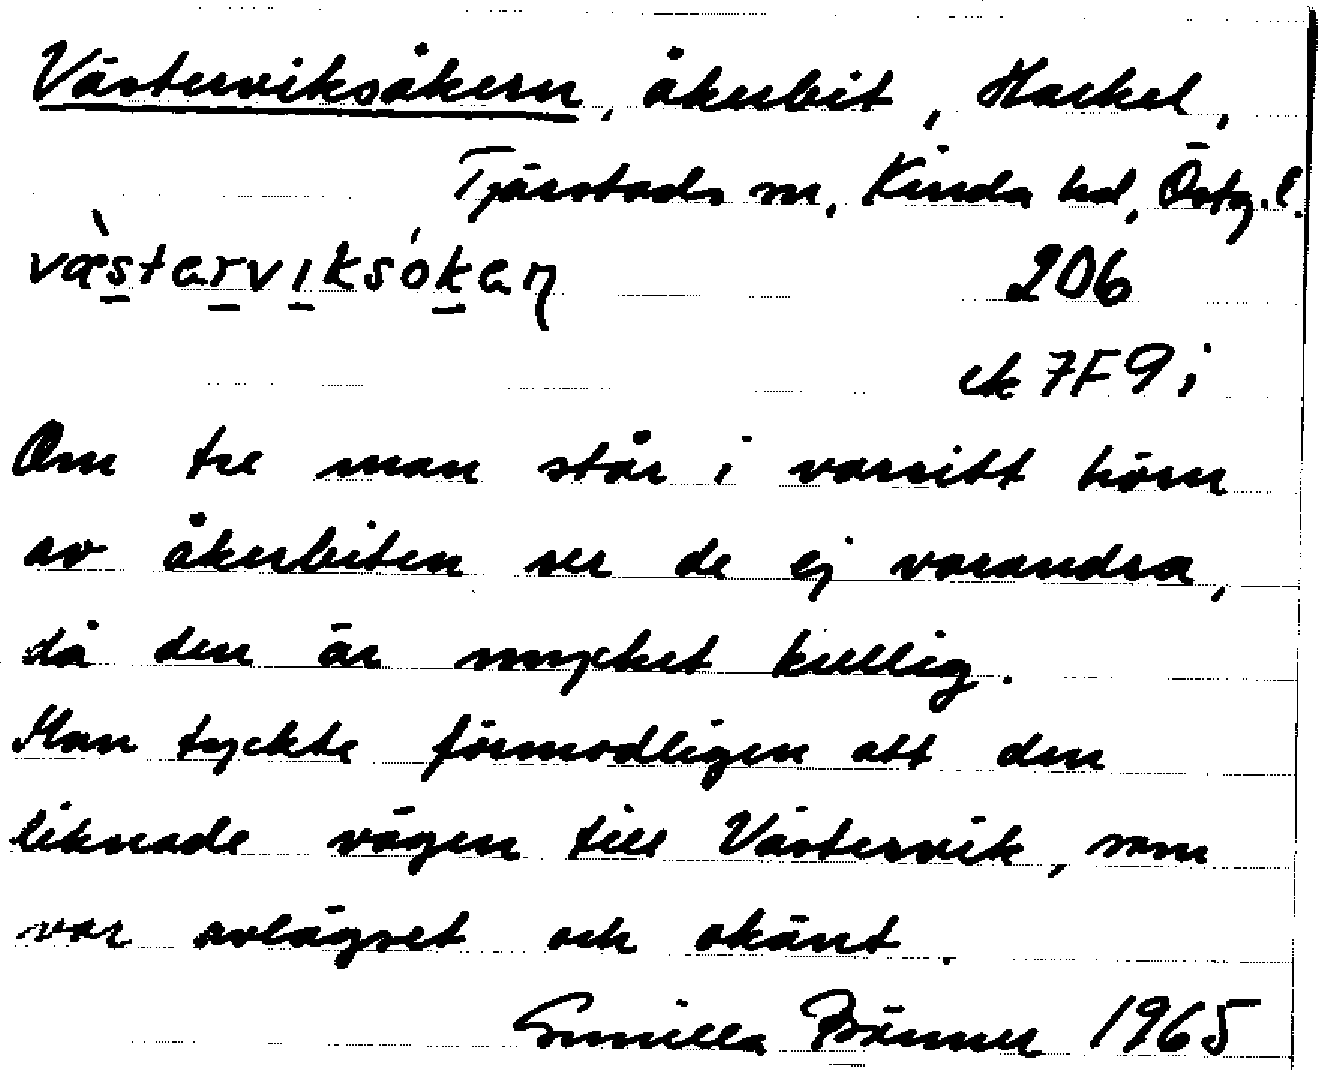 Västerviksåkern, åkerbit, Hackel,
Tjärstads sn, Kinda hd, Östg.l.
væ̀starviksókaɳ
206
ek 7F9i
Om tre man står i varsitt hörn
av åkerbiten ser de ej varandra,
då den är mycket kullig.
Man tyckte förmodligen att den
liknade vägen till Västervik, som
var avlägset och okänt.
Gunilla Bänner 1965